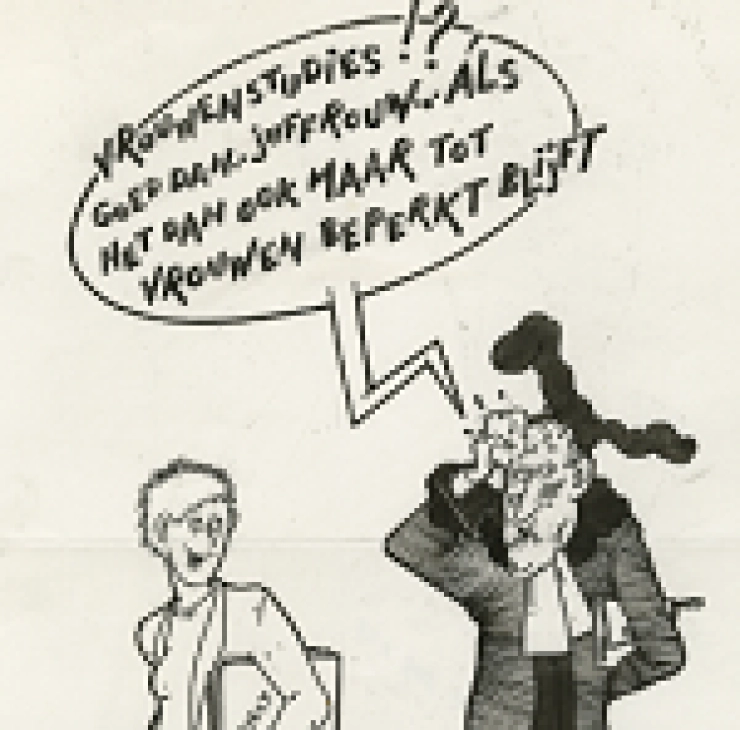 VROUWENSTUDIES !?
GOED DAN, JUFFROUW.. ALS
HET DAN OOK MAAR TOT
VROUWEN BEPERKT BLIJFT